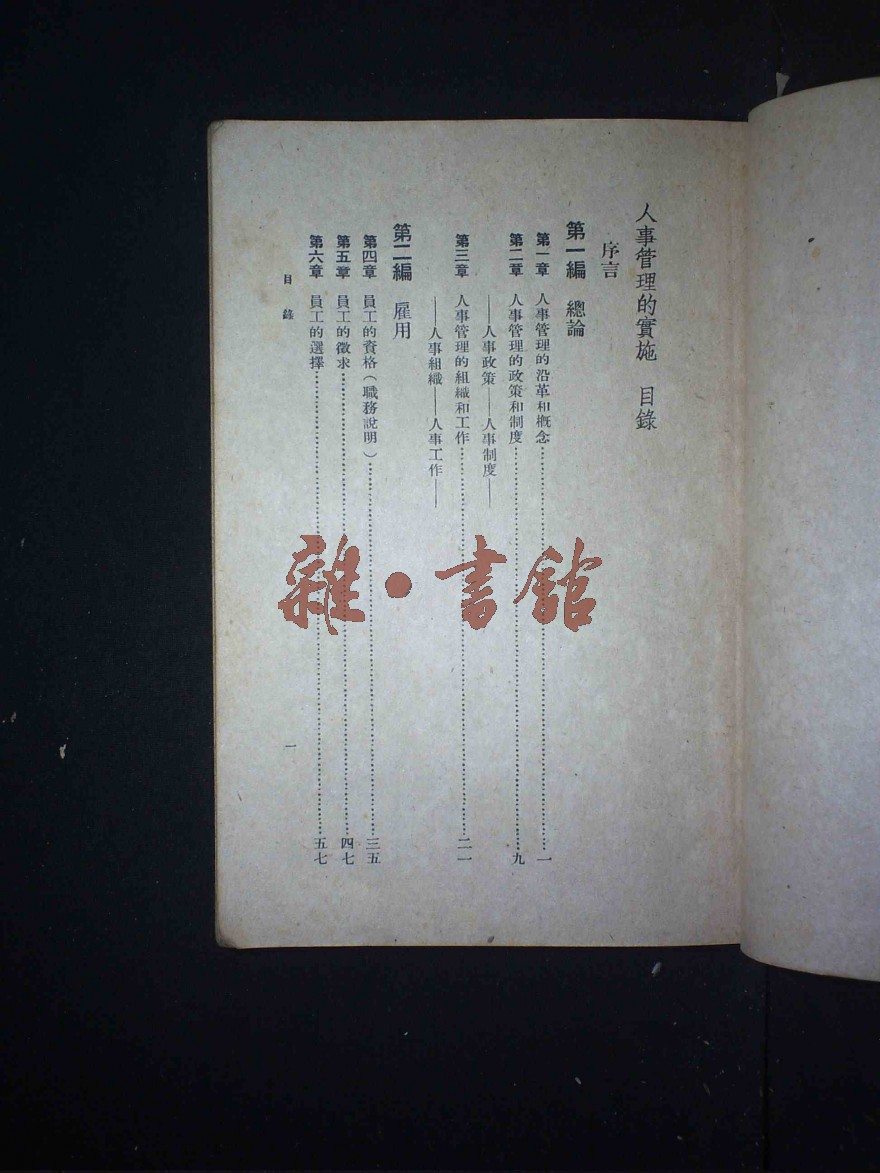 人事管理的實施　目錄
序言
第一編　總論
第一章　人事管理的沿革和概念……一
第二章　人事管理的政策和制度……九
——人事政策——人事制度——
第三章　人事管理的組織和工作……二一
——人事組織——人事工作——
第二編　雇用
第四章　員工的資格（職務說明）……三五
第五章　員工的徵求……四七
第六章　員工的選擇……五七
目錄　一
雜·書館